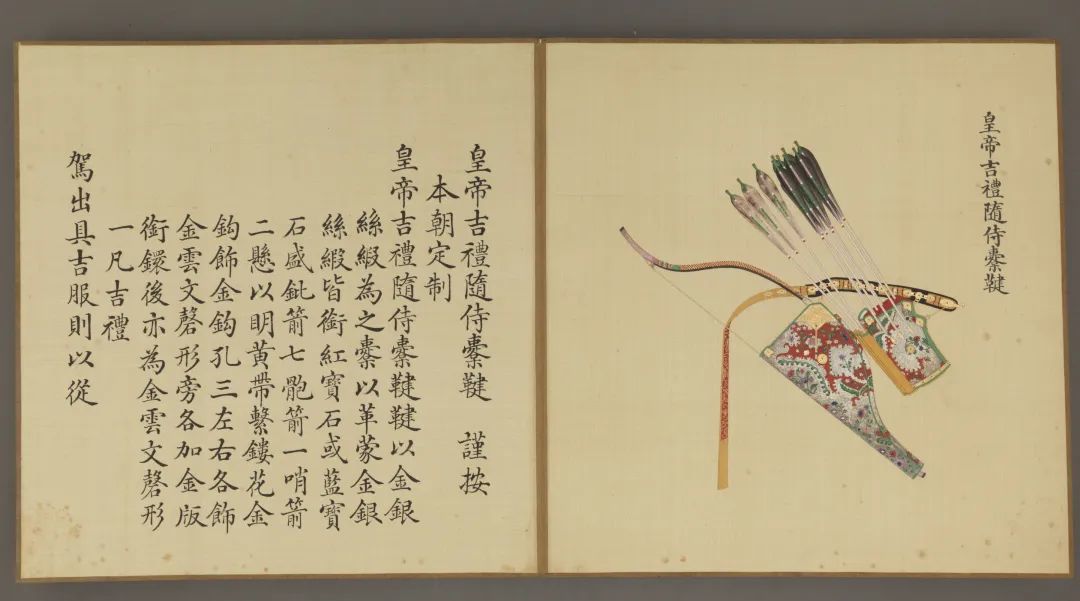 皇帝吉禮隨侍櫜鞬
皇帝吉禮隨侍櫜鞬 謹按
本朝定制
皇帝吉禮隨侍櫜鞬鞬以金銀
絲緞為之櫜以革蒙金銀
絲緞皆銜紅寶石或藍寶
石盛鈚箭七骲箭一哨箭
二懸以明黃帶繫鏤花金
鈎飾金鈎孔三左右各飾
金雲文磬形旁各加金版
銜鐶後亦為金雲文磬形
一凡吉禮
駕出具吉服則以從